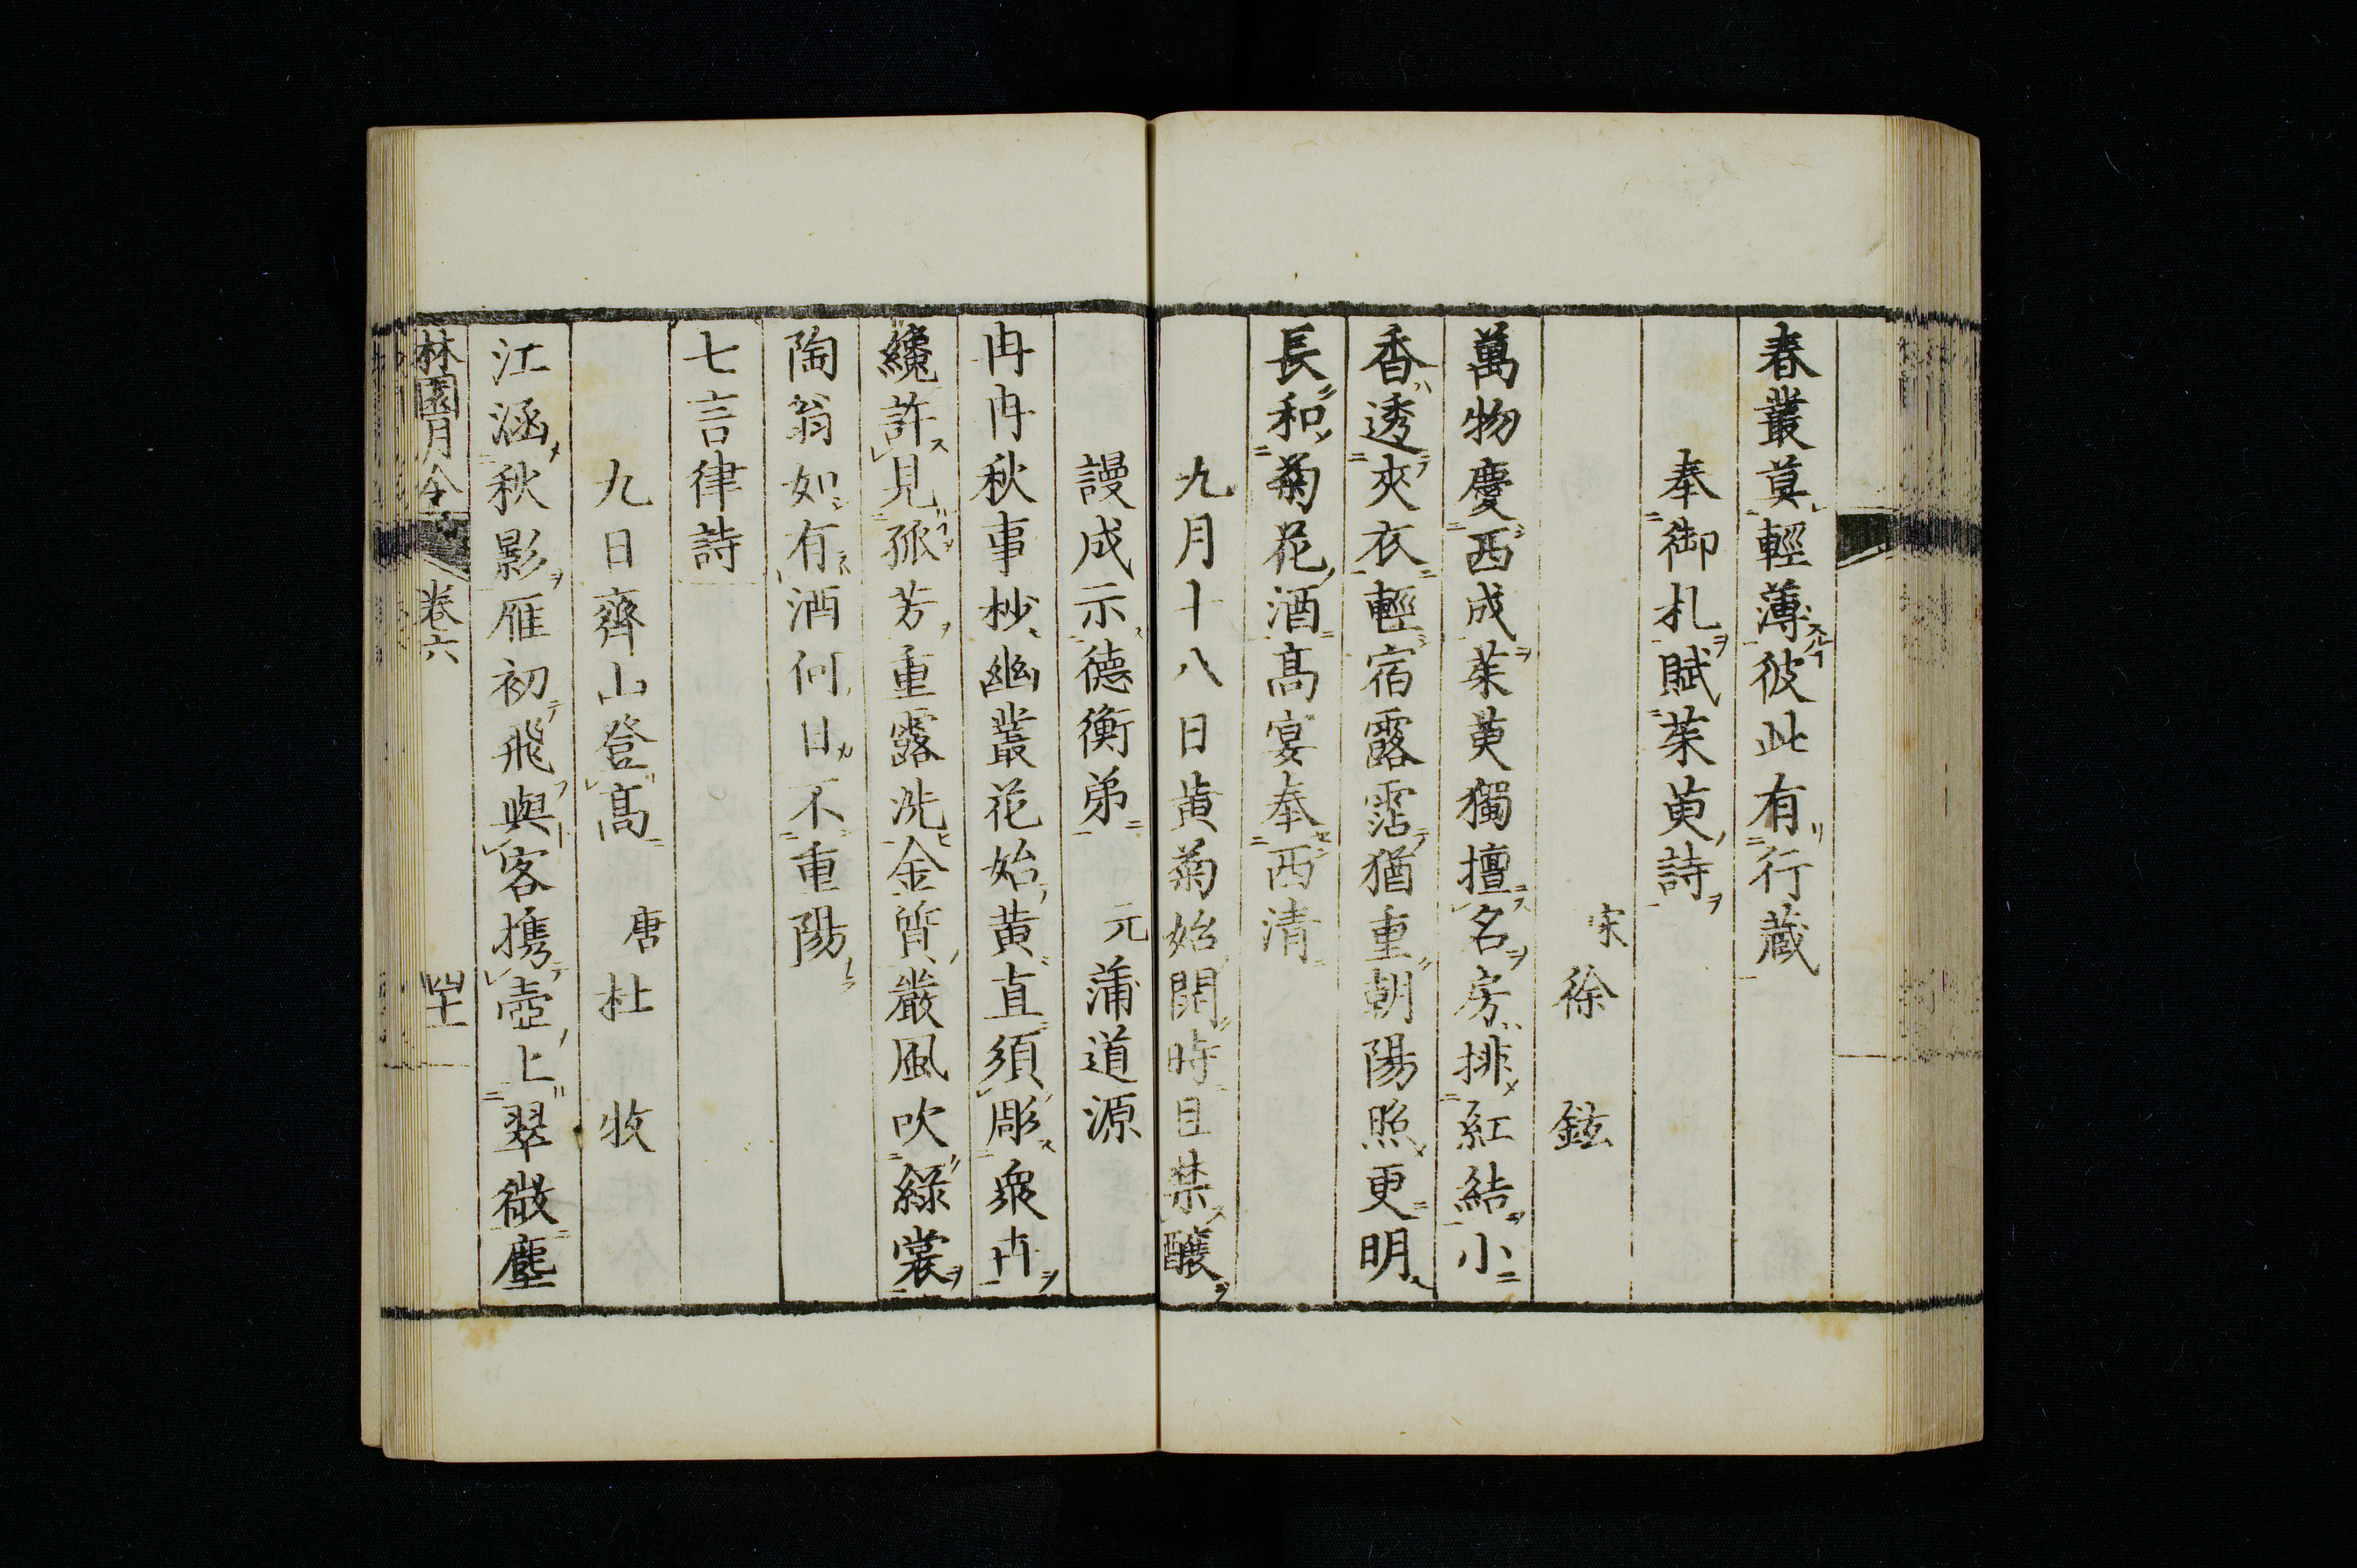 春叢莫輕薄彼此有行蔵
奉御札賦茱萸詩
宋徐鉉
萬物慶西成茱萸獨擅名房排紅結小
香透夾衣輕宿露霑猶重朝陽照更明
長和菊花酒高宴奉西清
九月十八日黄菊始開時且禁釀
謾成示德衡弟 元蒲道源
冉冉秋事杪幽叢花始黄直須彫衆卉
纔許見孤芳重露洗金質嚴風吹緑裳
陶翁如有酒何日不重陽
七言律詩
九日齊山登高 唐杜牧
江涵秋影雁初飛與客攜壺上翠微塵
林園月令 卷六 四十一